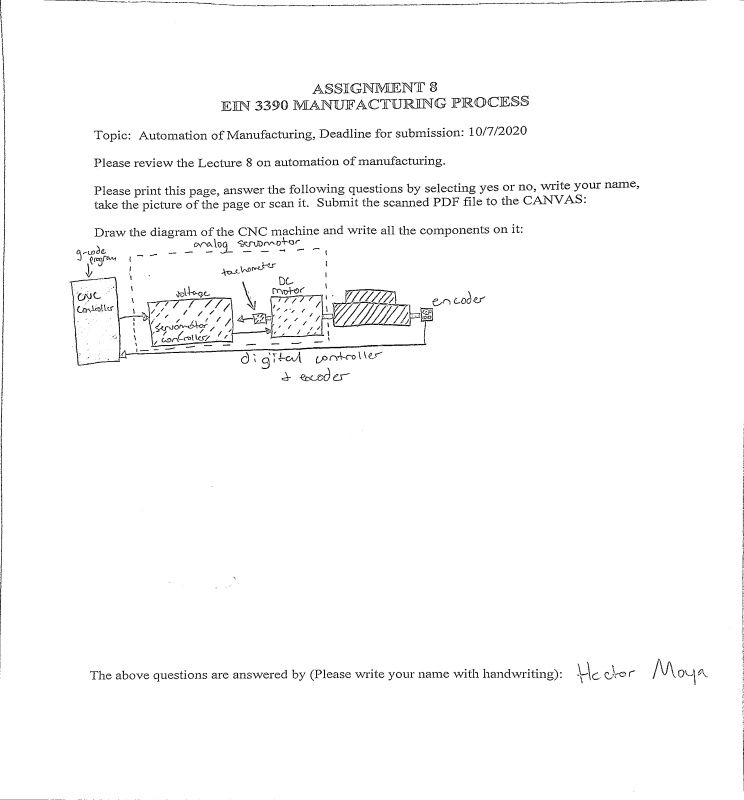 ASSIGNMENT 8
EIN 3390 MANUFACTURING PROCESS
Topic: Automation of Manufacturing, Deadline for submission: 10/7/2020
Please review the Lecture 8 on automation of manufacturing.
Please print this page, answer the following questions by selecting yes or no, write your name,
take the picture of the page or scan it. Submit the scanned PDF file to the CANVAS:
Draw the diagram of the CNC machine and write all the components on it:
analog servomotor
g-code
program
tachometer
DC
motor
voltage
CNC
controller
encoder
servomotor
controller
digital controller
+ encoder
The above questions are answered by (Please write your name with handwriting): Hector Moya